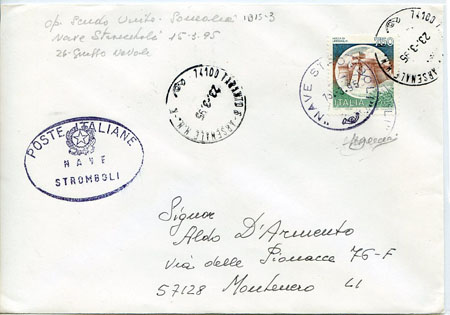 Op. Scudo Unito - Somalia 1B15-3
Nave Stromboli 15-3-95
26° Gruppo Navale
74100 TARANTO 6 - ARSENALE M.M.
23-3-95
750
ITALIA
"NAVE STROMBOLI"
74100
23-3-95
ARSENALE M.M.
POSTE ITALIANE
NAVE
STROMBOLI
Signor
Aldo D'Armento
Via delle Pianacce 76-F
57128 Montenero LI